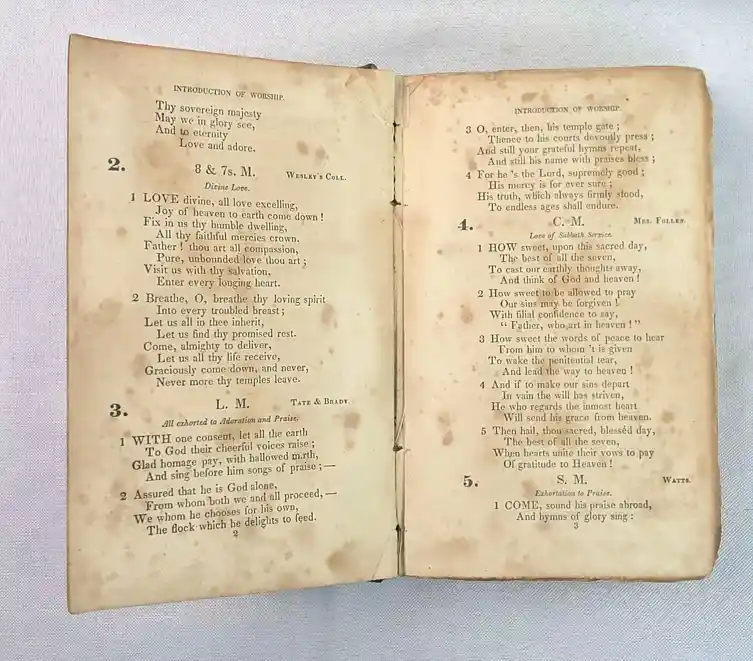 INTRODUCTION OF WORSHIP.
Thy sovereign majesty
May we in glory see,
And to eternity
Love and adore.
2. 8 & 7s. M. WESLEY'S COLL.
Divine Love.
1 LOVE divine, all love excelling,
Joy of heaven to earth come down!
Fix in us thy humble dwelling,
All thy faithful mercies crown.
Father! thou art all compassion,
Pure, unbounded love thou art;
Visit us with thy salvation,
Enter every longing heart.
2 Breathe, O, breathe thy loving spirit
Into every troubled breast;
Let us all in thee inherit,
Let us find thy promised rest.
Come, almighty to deliver,
Let us all thy life receive,
Graciously come down, and never,
Never more thy temples leave.
3. L. M. TATE & BRADY.
All exhorted to Adoration and Praise.
1 WITH one consent, let all the earth
To God their cheerful voices raise;
Glad homage pay, with hallowed mirth,
And sing before him songs of praise;—
2 Assured that he is God alone,
From whom both we and all proceed,—
We whom he chooses for his own,
The flock which he delights to feed.
2
INTRODUCTION OF WORSHIP.
3 O, enter, then, his temple gate;
Thence to his courts devoutly press;
And still your grateful hymns repeat,
And still his name with praises bless;
4 For he 's the Lord, supremely good;
His mercy is for ever sure;
His truth, which always firmly stood,
To endless ages shall endure.
4. C. M. MRS. FOLLEN.
Love of Sabbath Service.
1 HOW sweet, upon this sacred day,
The best of all the seven,
To cast our earthly thoughts away,
And think of God and heaven!
2 How sweet to be allowed to pray
Our sins may be forgiven!
With filial confidence to say,
"Father, who art in heaven!"
3 How sweet the words of peace to hear
From him to whom 't is given
To wake the penitential tear,
And lead the way to heaven!
4 And if to make our sins depart
In vain the will has striven,
He who regards the inmost heart
Will send his grace from heaven.
5 Then hail, thou sacred, blesséd day,
The best of all the seven,
When hearts unite their vows to pay
Of gratitude to Heaven!
5. S. M. WATTS.
Exhortation to Praise.
1 COME, sound his praise abroad,
And hymns of glory sing:
3